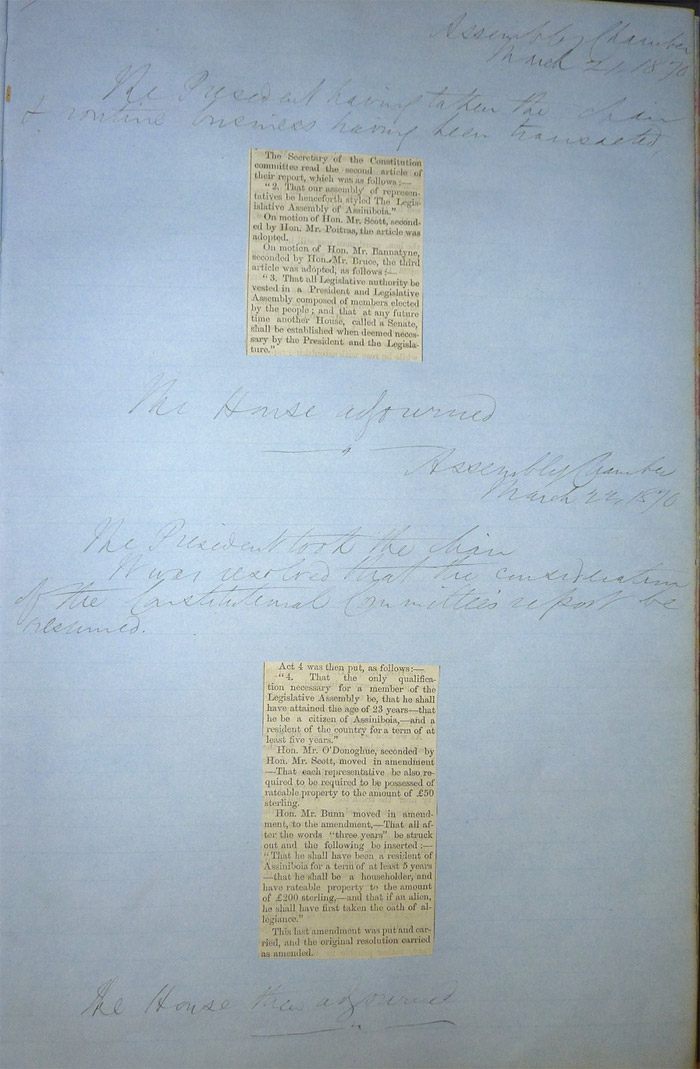 Assembly Chamber
March 21, 1870
The President having taken the chair
& routine business having been transacted,
The Secretary of the Constitution
committee read the second article of
their report, which was as follows :—
"2. That our assembly of represen-
tatives be henceforth styled The Legis-
islative Assembly of Assiniboia."
On motion of Hon. Mr. Scott, second-
ed by Hon. Mr. Poitras, the article was
adopted.
On motion of Hon. Mr. Bannatyne,
seconded by Hon. Mr. Bruce, the third
article was adopted, as follows :—
"3. That all Legislative authority be
vested in a President and Legislative
Assembly composed of members elected
by the people ; and that at any future
time another House, called a Senate,
shall be established when deemed neces-
sary by the President and the Legisla-
ture."
The House adjourned
Assembly Chamber
March 22, 1870
The President took the chair
It was resolved that the consideration
of the Constitutional Committee's report be
resumed.
Act 4 was then put, as follows:—
"4. That the only qualifica-
tion necessary for a member of the
Legislative Assembly be, that he shall
have attained the age of 23 years—that
he be a citizen of Assiniboia,—and a
resident of the country for a term of at
least five years."
Hon. Mr. O'Donoghue, seconded by
Hon. Mr. Scott, moved in amendment
—That each representative be also re-
quired to be required to be possessed of
rateable property to the amount of £50
sterling.
Hon. Mr. Bunn moved in amend-
ment, to the amendment,—That all af-
ter the words "three years" be struck
out and the following be inserted :—
"That he shall have been a resident of
Assiniboia for a term of at least 5 years
—that he shall be a householder, and
have rateable property to the amount
of £200 sterling,—and that if an alien,
he shall have first taken the oath of al-
legiance."
This last amendment was put and car-
ried, and the original resolution carried
as amended.
The House then adjourned